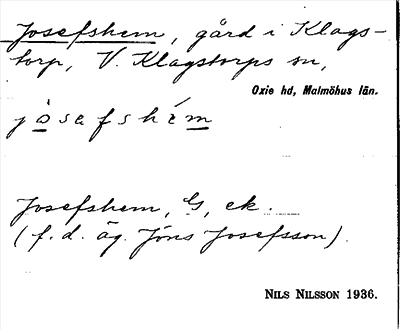 Josefshem, gård i Klags-
torp, V. Klagstorps sn,
Oxie hd, Malmöhus län.
jòsefshém
Josefshem, G, ek.
(f. d. äg. Jöns Josefsson).
NILS NILSSON 1936.